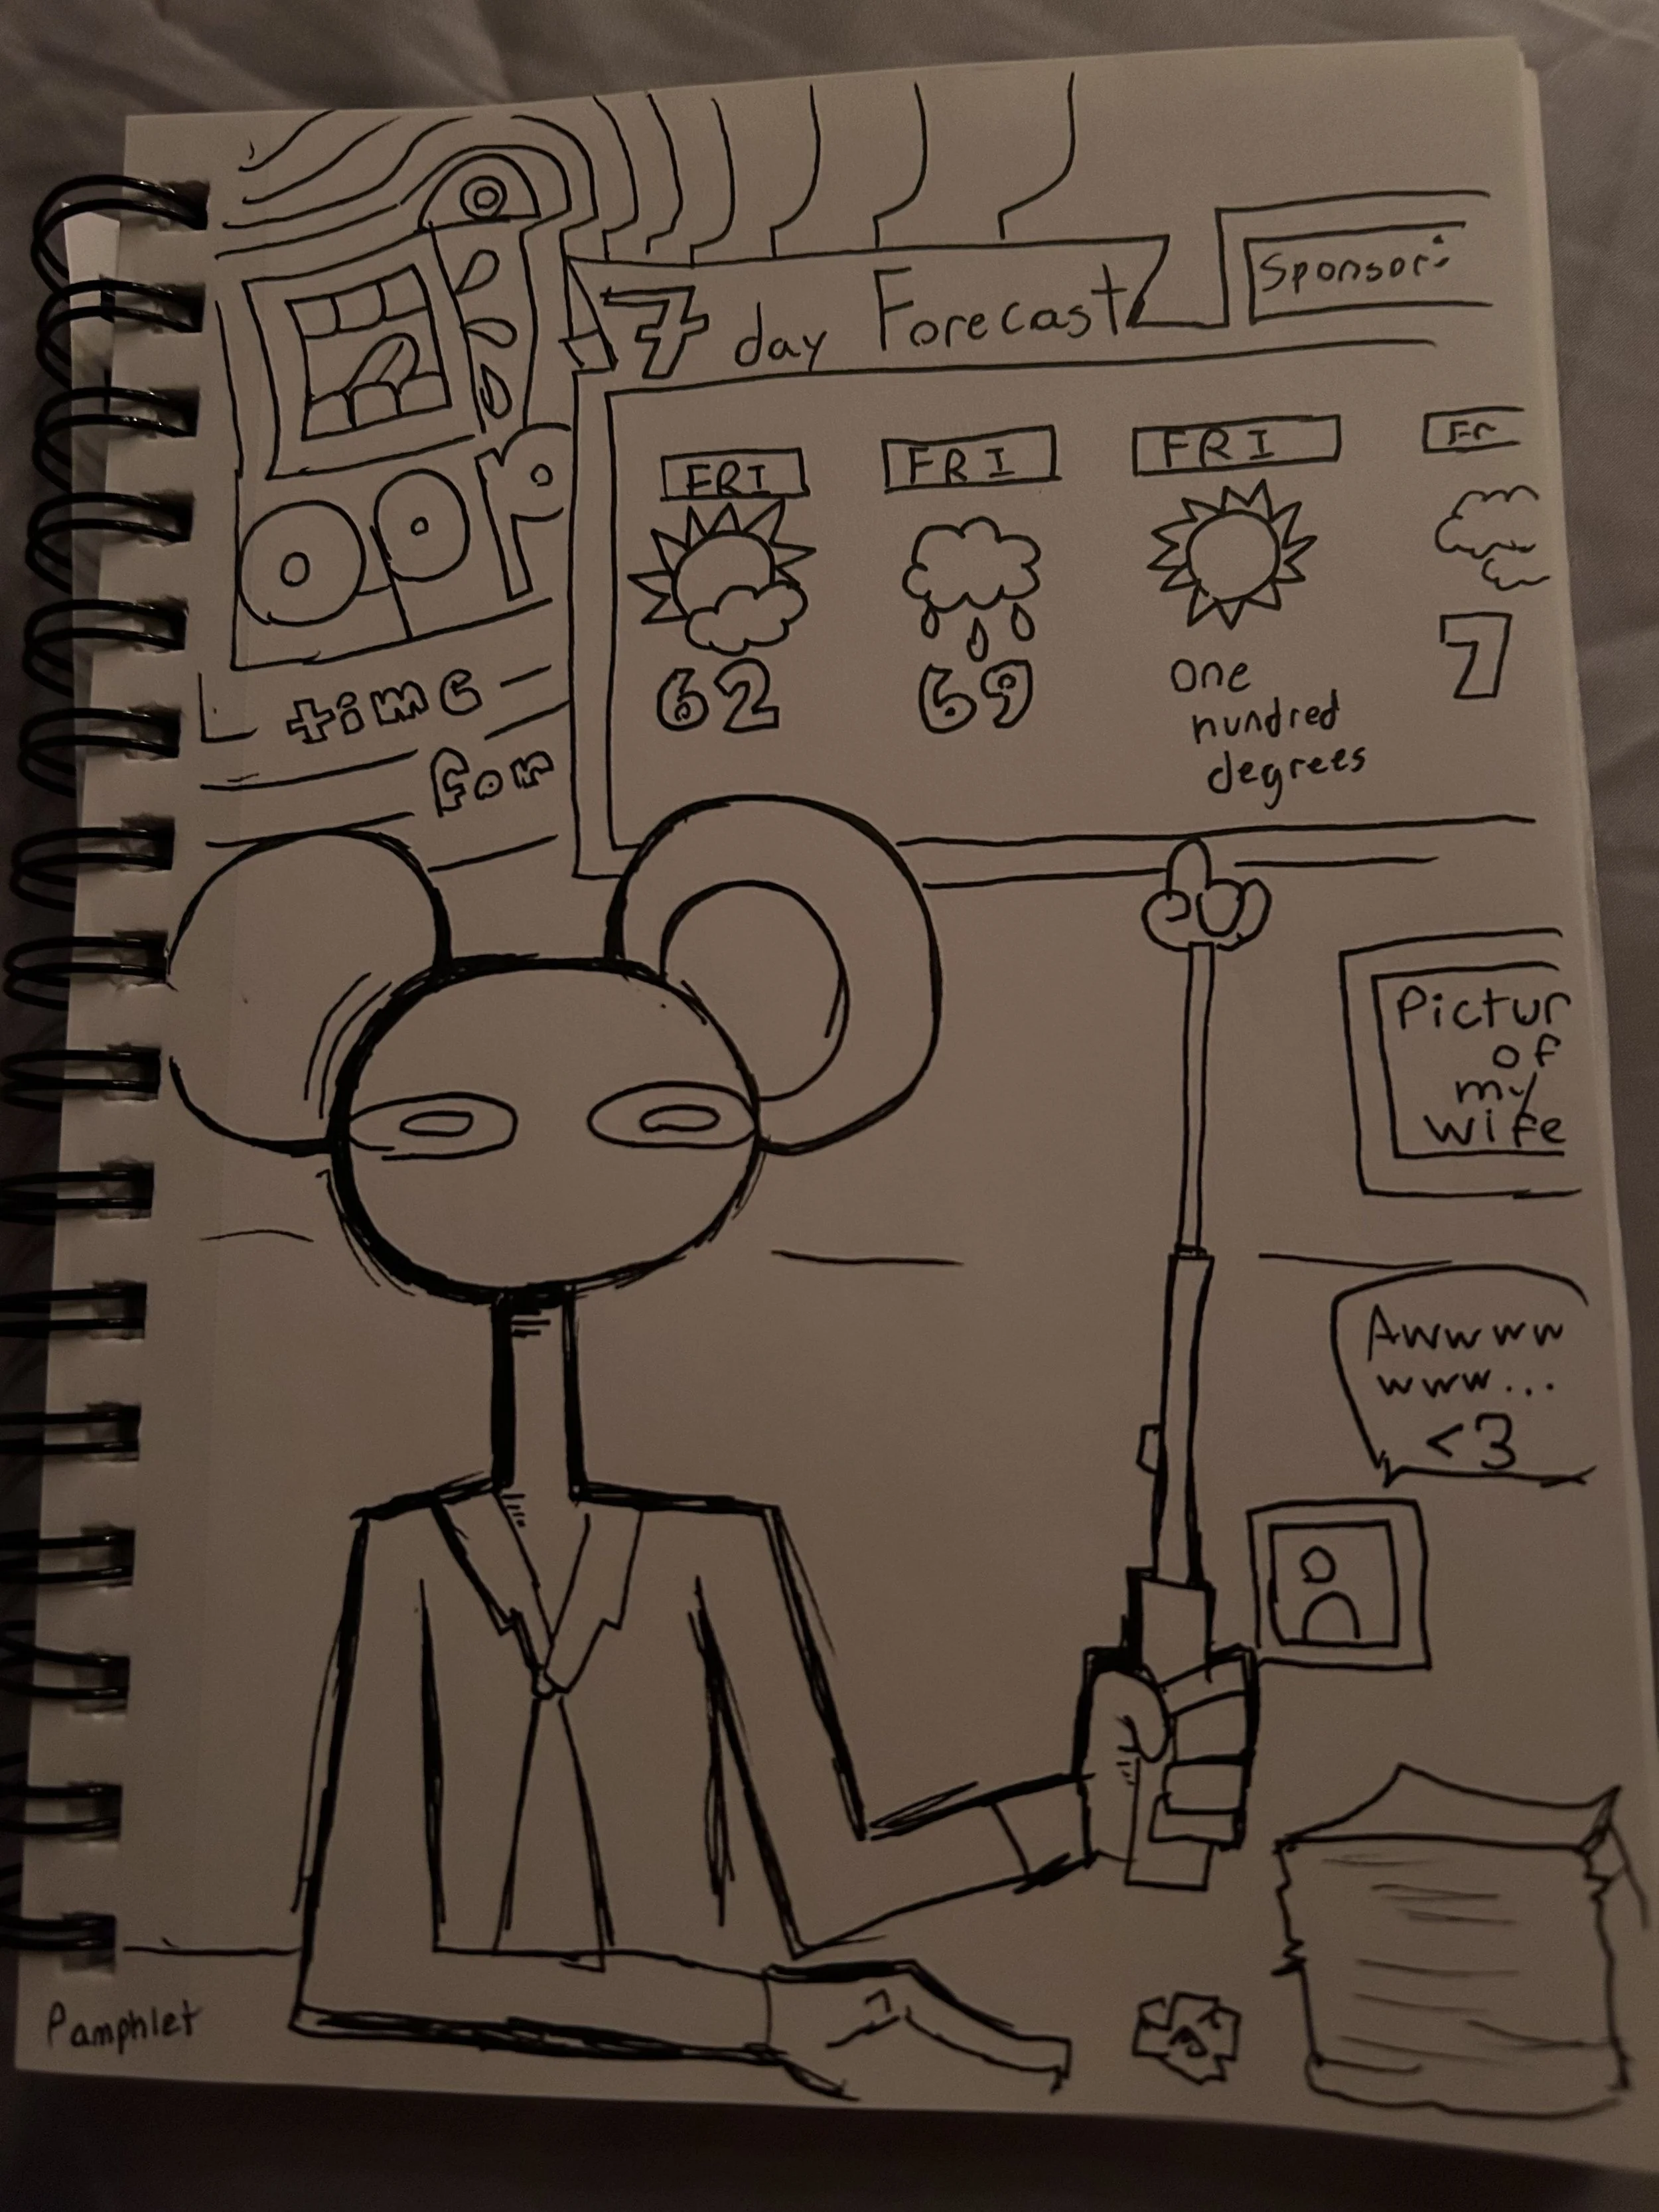 7 day Forecast
Sponsor:
FRI
FRI
FRI
Fr
62
69
one
hundred
degrees
7
oop
time
for
Pictur
of
my
wife
Awwww
www...
<3
Pamphlet